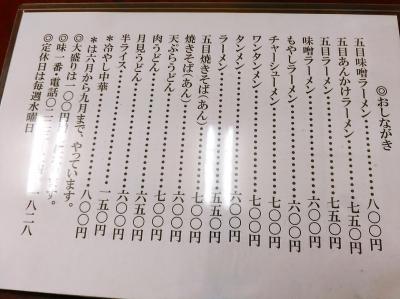 ◎おしながき
五目味噌ラーメン……………八〇〇円
五目あんかけラーメン……………七五〇円
五目ラーメン……………七五〇円
味噌ラーメン……………
もやしラーメン……………六〇〇円
チャーシューメン……………七〇〇円
ワンタンメン……………七〇〇円
タンメン……………六〇〇円
ラーメン……………五五〇円
五目焼きそば(あん)……………七〇〇円
焼きそば(あん)……………六〇〇円
天ぷらうどん……………七〇〇円
肉うどん……………六五〇円
月見うどん……………六〇〇円
半ライス……………一五〇円
*冷やし中華……………八〇〇円
*は六月から九月まで、やっています。
◎大盛りは一〇〇円 す。
◎味一番・電話〇二三 一八二八
◎定休日は毎週水曜日